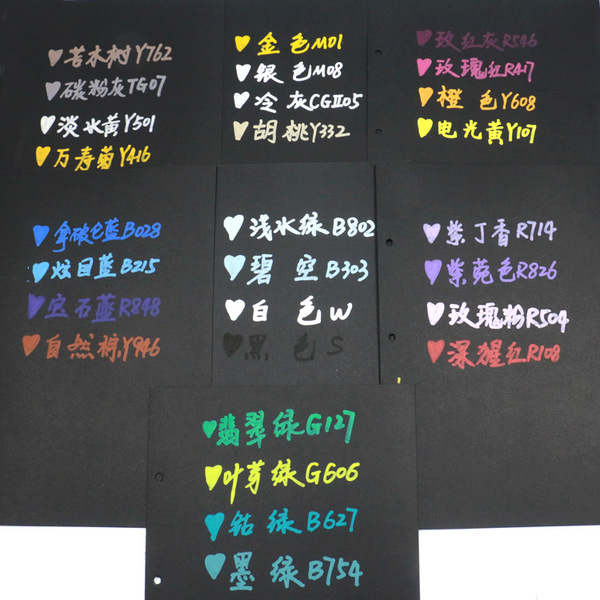 苦木树Y762
碳粉灰TG07
淡水黄Y501
万寿菊Y416
金色M01
银色M08
冷灰CGII05
胡桃Y332
玫红灰R546
玫瑰红RA17
橙色Y608
电光黄Y107
拿破仑蓝B028
炫目蓝B215
宝石蓝R848
自然棕Y946
浅水绿B802
碧空B303
白色W
黑色S
紫丁香R714
紫菀色R826
玫瑰粉R504
深猩红R108
翡翠绿G127
叶芽绿G606
钴绿B627
墨绿B754